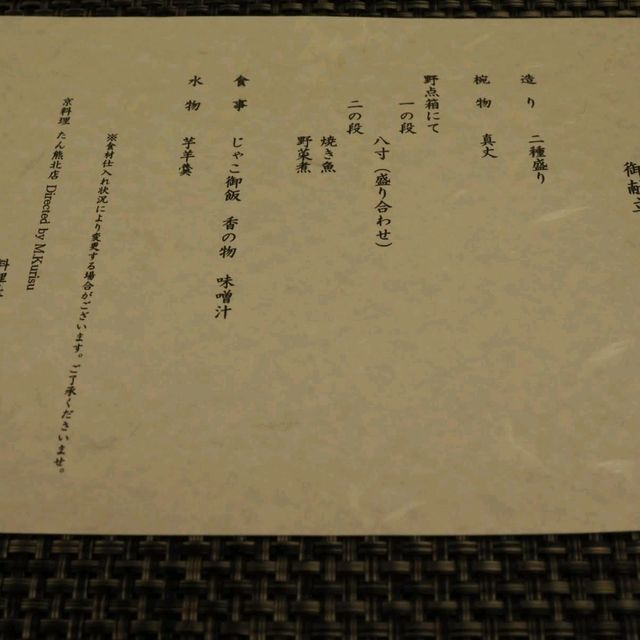 御献立
造り 二種盛り
椀物 真丈
野点箱にて
一の段
八寸（盛り合わせ）
二の段
焼き魚
野菜煮
食事 じゃこ御飯 香の物 味噌汁
水物 芋羊羹
※食材仕入れ状況により変更する場合がございます。ご了承くださいませ。
京料理 たん熊北店 Directed by M.Kurisu